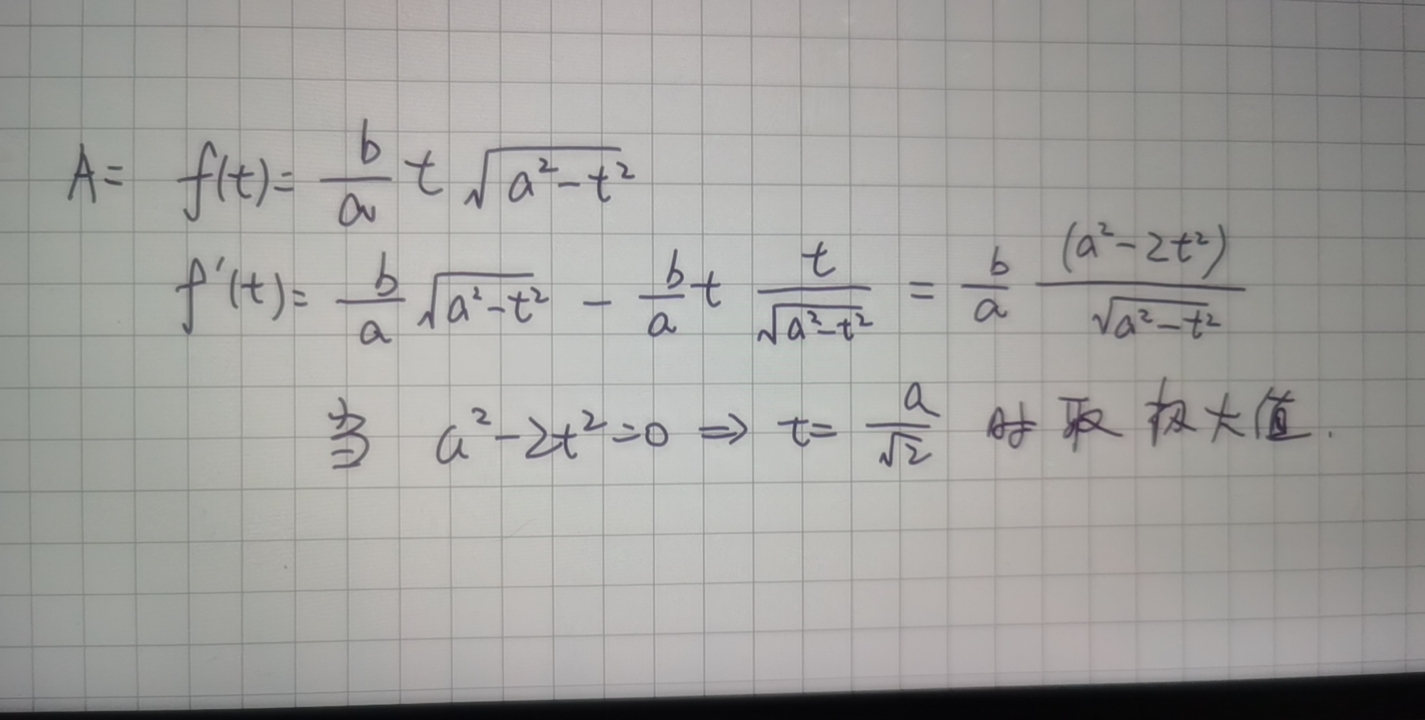 A= f(t)= \frac{b}{a} t \sqrt{a^2-t^2}
f'(t)= \frac{b}{a} \sqrt{a^2-t^2} - \frac{b}{a} t \frac{t}{\sqrt{a^2-t^2}} = \frac{b}{a} \frac{(a^2-2t^2)}{\sqrt{a^2-t^2}}
当 a^2-2t^2=0 ⇒ t= \frac{a}{\sqrt{2}} 时取极大值.